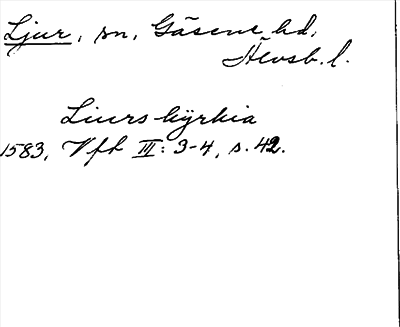 Ljur, sn, Gäsene hd,
Älvsb. l.
Liurs kÿrkia
1583, Vfh III: 3-4, s. 42.